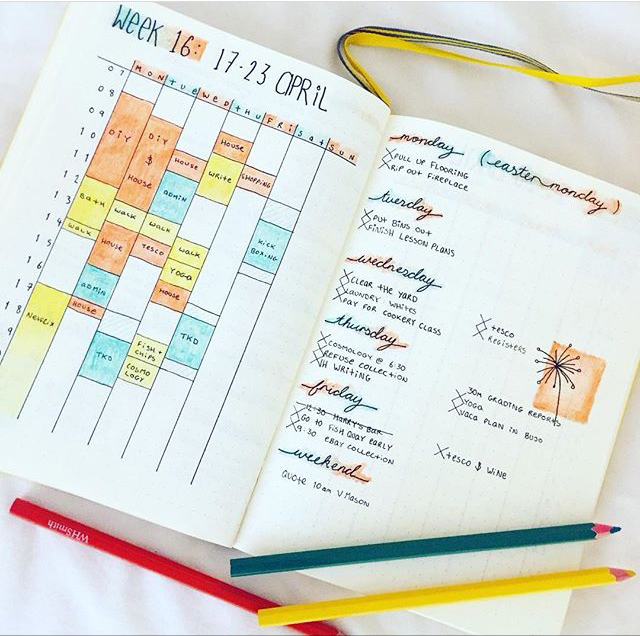 WEEK 16: 17-23 APRIL
MON TUE WED THU FRI SAT SUN
07
08
09
10
11
12
13
14
15
16
17
18
DIY
DIY
$
HOUSE
HOUSE
HOUSE
WRITE
SHOPPING
ADMIN
BATH
WALK
WALK
WALK
HOUSE
TESCO
WALK
KICK
BOXING
YOGA
ADMIN
HOUSE
HOUSE
NETFLIX
TKD
FISH +
CHIPS
COSMO
LOGY
TKD
monday (easter monday)
PULL UP FLOORING
RIP OUT FIREPLACE
tuesday
PUT BINS OUT
FINISH LESSON PLANS
wednesday
CLEAR THE YARD
LAUNDRY WHITES
PAY FOR COOKERY CLASS
TESCO
REGISTERS
thursday
COSMOLOGY @ 6:30
REFUSE COLLECTION
VH WRITING
30M GRADING REPORTS
YOGA
VACA PLAN IN BUJO
friday
12:30 HARRY'S BAR
GO TO FISH QUAY EARLY
9:30 EBAY COLLECTION
TESCO $ WINE
weekend
QUOTE 10am V MASON
WHSmith